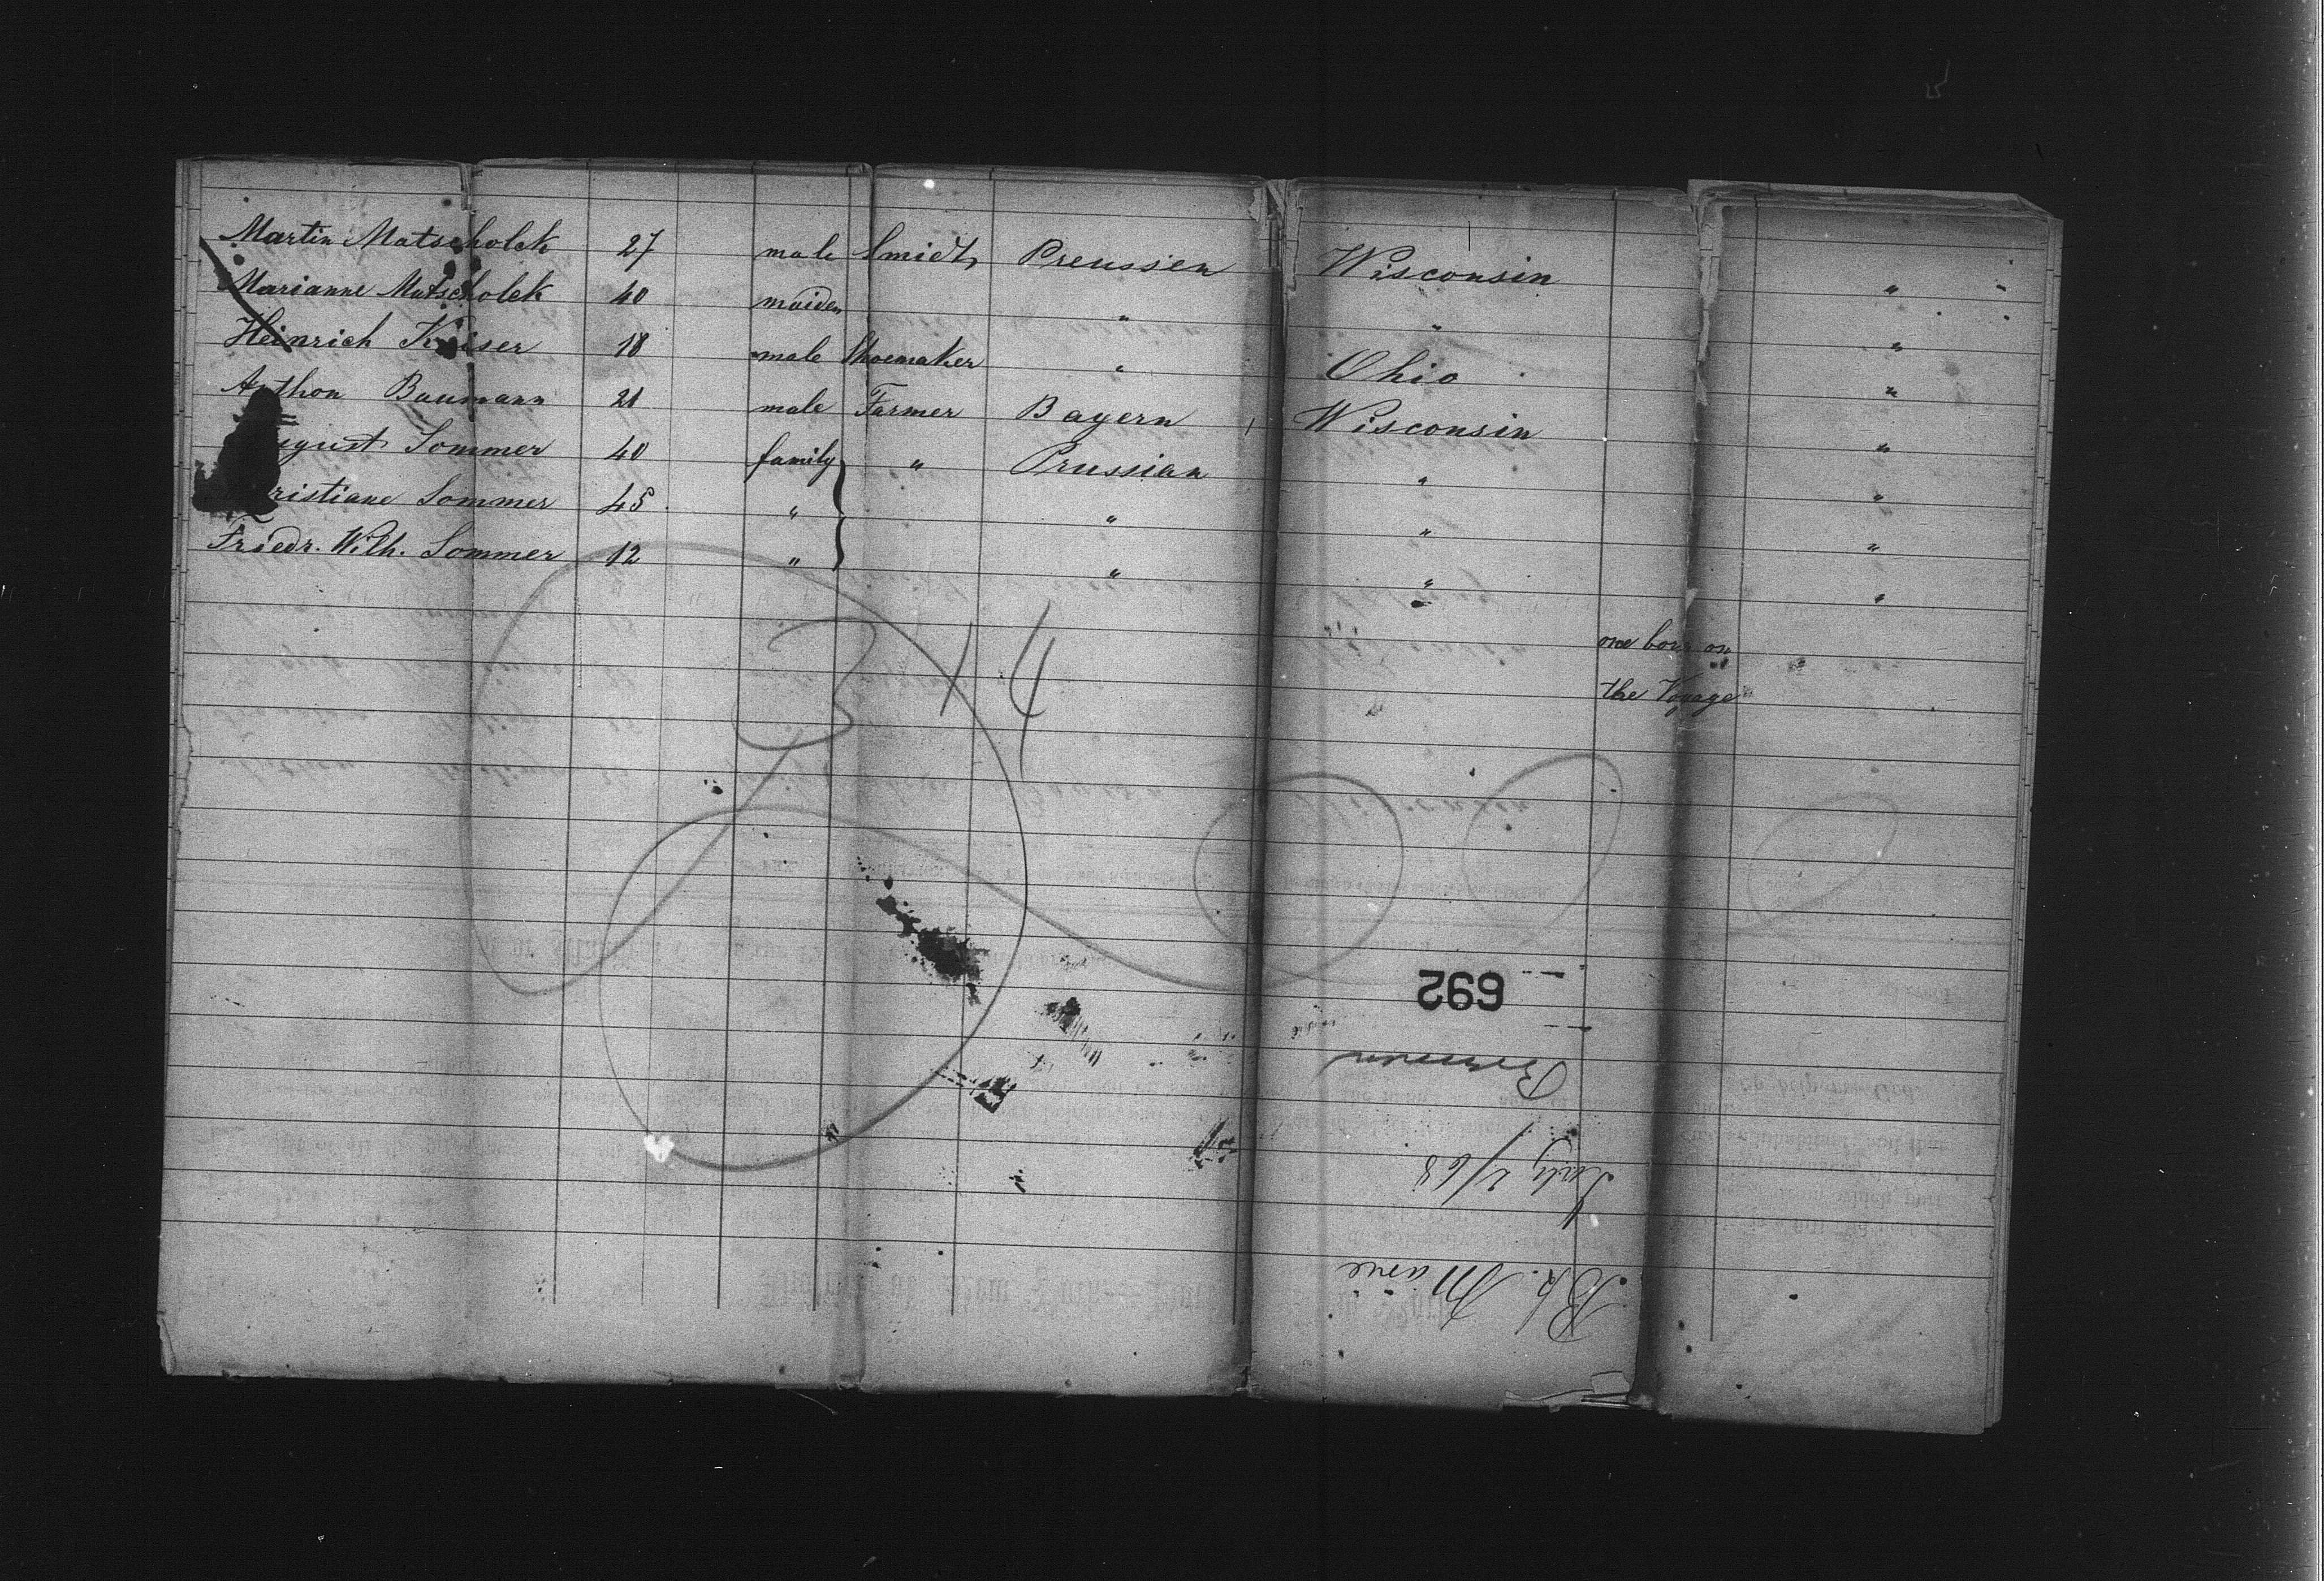 Martin Matscholck 27 male Smidt Preussen Wisconsin "
Marianne Matscholck 40 maiden " " "
Heinrich Kaiser 18 male Shoemaker " Ohio "
Anthon Baumann 21 male Farmer Bayern Wisconsin "
August Sommer 40 family " Prussian " "
Christiane Sommer 45 " " " "
Friedr. Wilh. Sommer 12 " " " "
one born on
the Voyage
314
692
Bremen
July 2/68
Bk. Marie